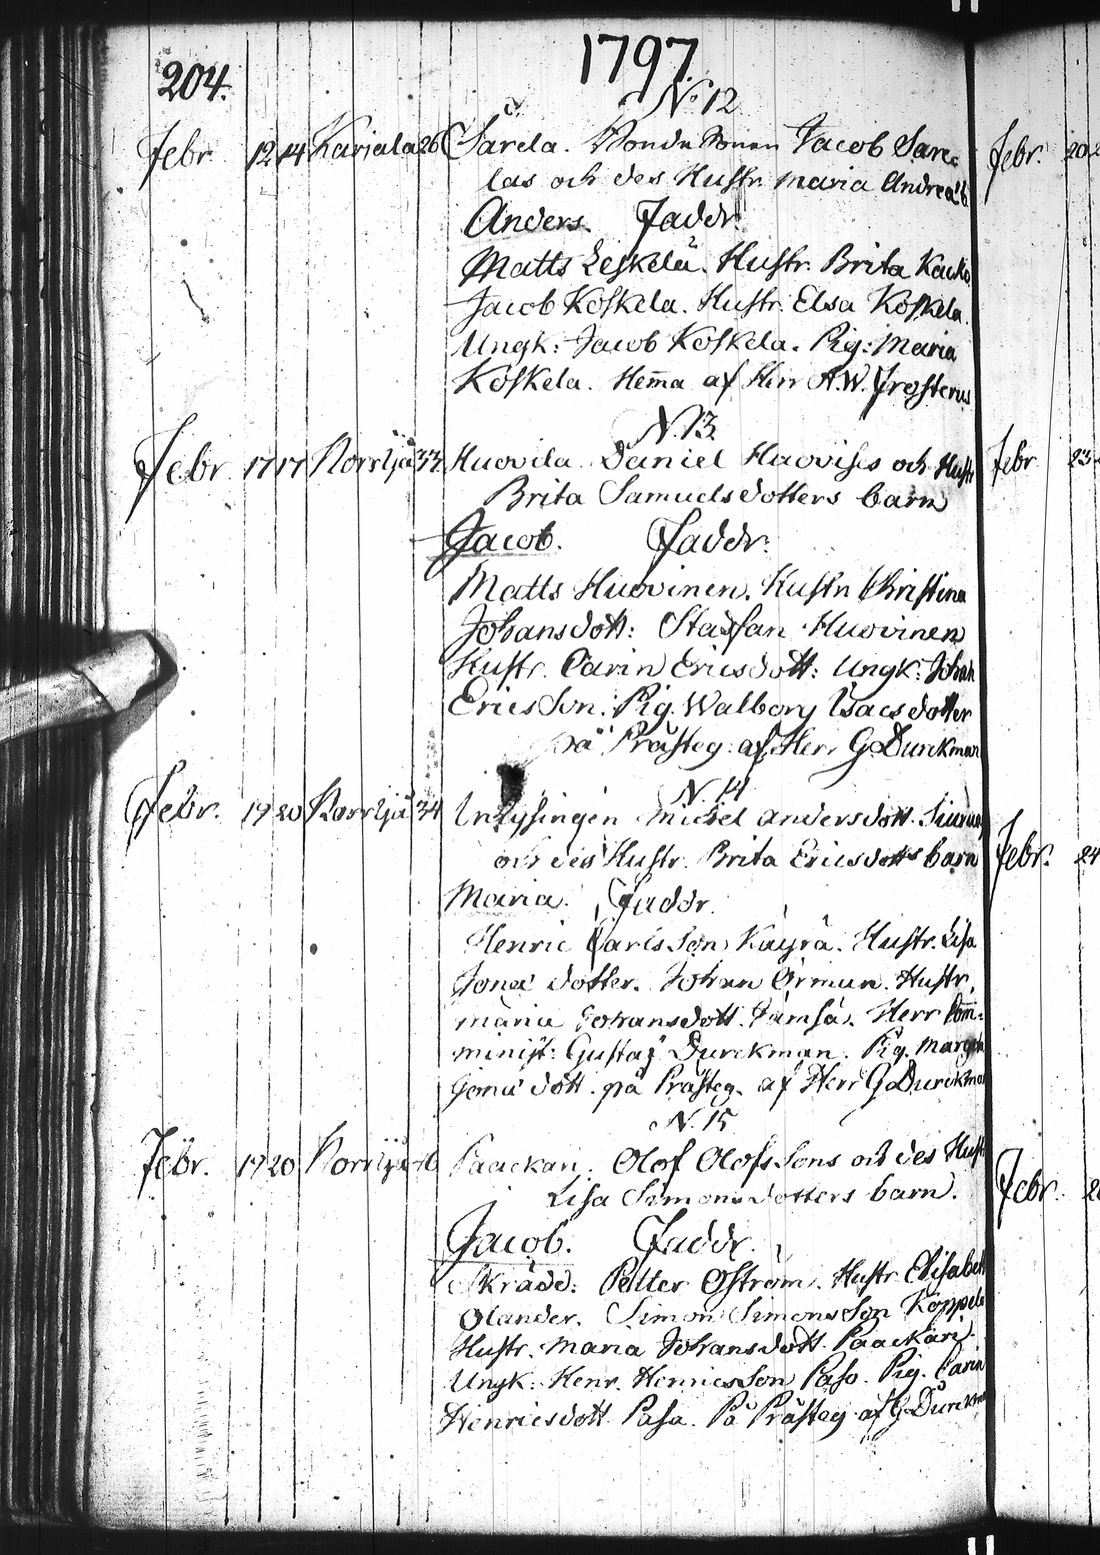 204. 1797.
N. 12
Febr. 12 14 Karjala 26 Särela. Bonde Sonen Jacob Sare-
las och des Hustr. Maria Andreæ b
Anders. Faddr.
Matts Leskelä. Hustr. Brita
Jacob Koskela. Hustr. Elsa Koskela.
Ungk: Jacob Koskela. Pig: Maria
Koskela. Hem̄a af Herr A.W. Frosterus
N. 13.
Febr. 17 17 Norrljä 33 Huovila Daniel Huoviss och Hustr
Brita Samuelsdotters barn
Jacob. Faddr.
Matts Huovinen. Hustr Christina
Johansdott: Staffan Huovinen
Hustr. Carin Ericsdott: Ungk: Johan
Ericsson. Pig. Walborg Isacsdotter
på Prästeg: af Herr G Durckman
N. 14
Febr. 19 20 Norrljä 34 Inhysingen Michel Andersdott.
och des Hustr. Brita Ericsdotts barn
Maria. Faddr.
Henric Carlsson Kayrä. Hustr. Lisa
Jonæ dotter. Johan Örman. Hustr.
Maria Johansdott. Jämsä. Herr Com-
minist: Gustaf Durckman. Pig. Margeta
Jonæ dott. på Prästeg. af Herr G Durckman
N. 15
Febr. 19 20 Norrljä Paackari. Olof Olofssons och des Hustr
Lisa Simonsdotters barn.
Jacob. Faddr.
Skrädd: Petter Öström. Hustr Elisabeth
Olander. Simon Simonsson Koppelo
Hustr. Maria Johansdott Paackari.
Ungk: Henr. Henricsson Paso. Pig. Carin
Henricsdott Pasa. På Prästeg af G Durckman
Febr. 20
Febr. 23
Febr. 24
Febr.